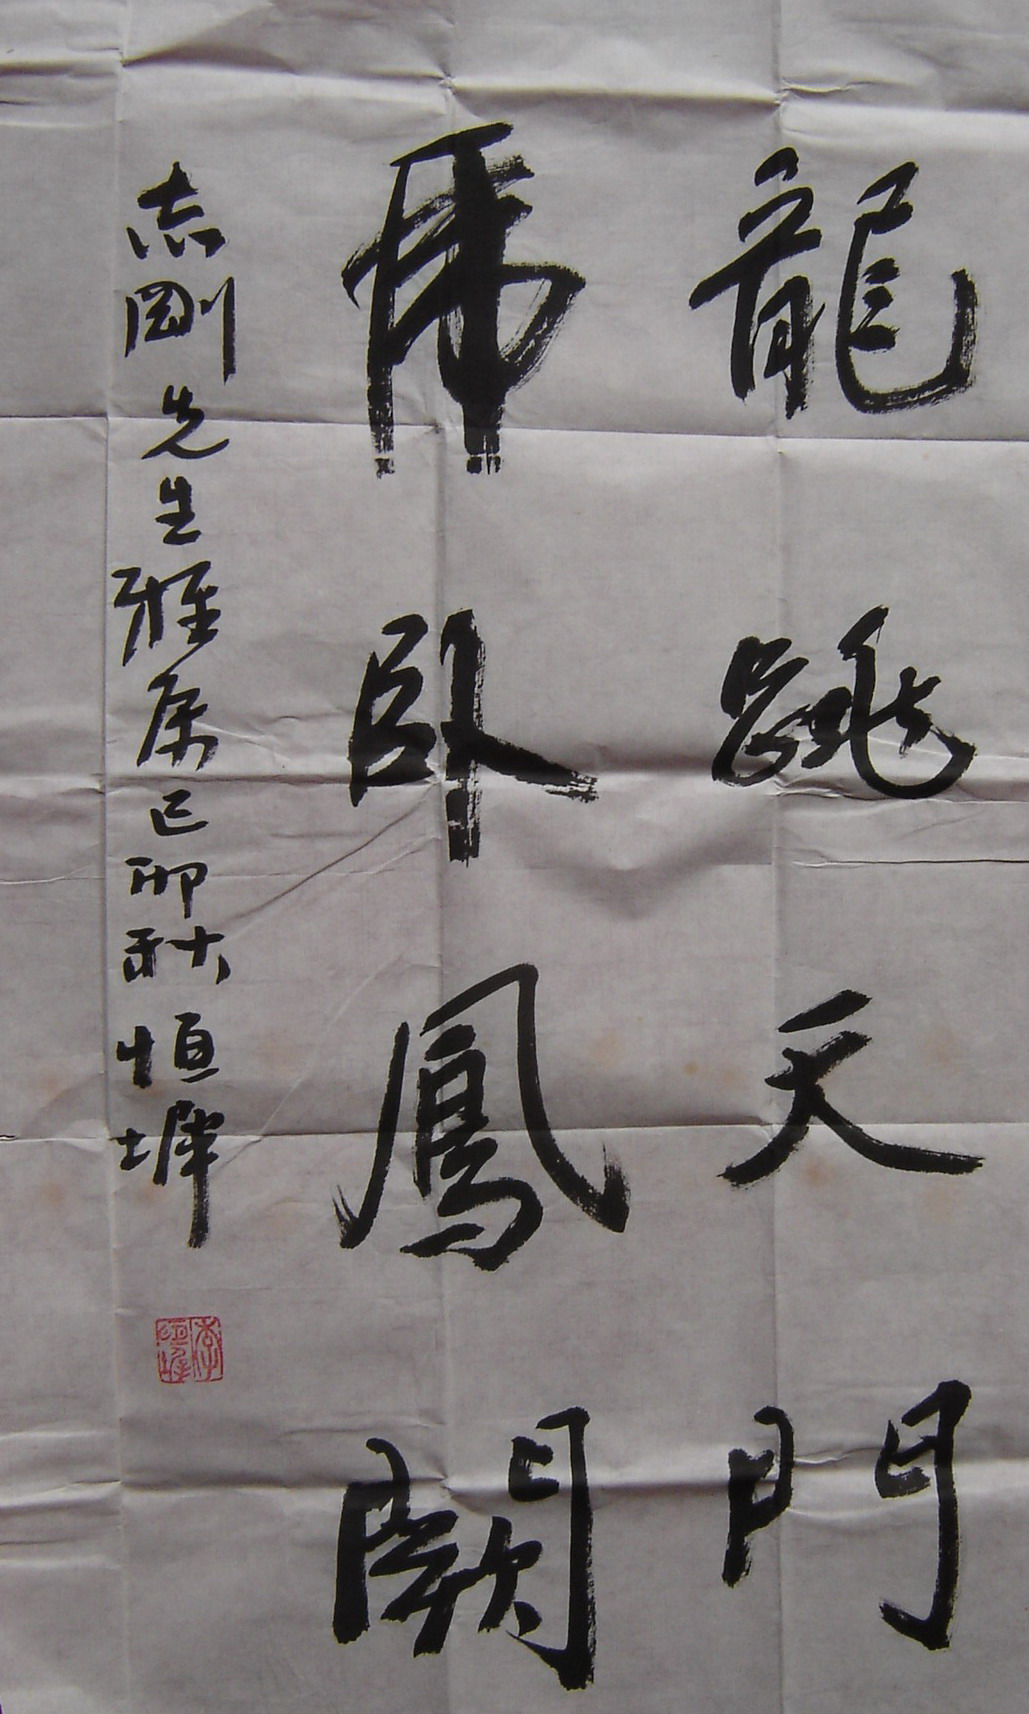 龍跳天門
虎卧鳳闕
志剛先生雅屬己卯秋恒墀